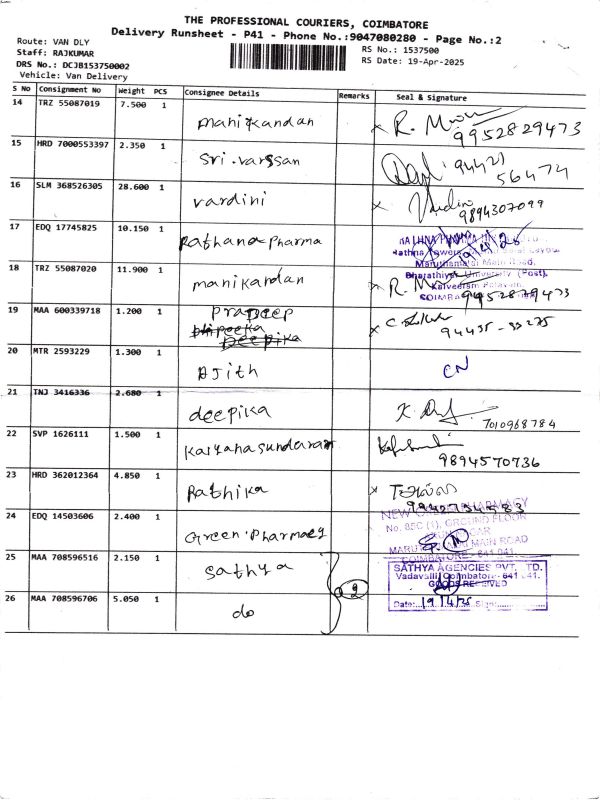 THE PROFESSIONAL COURIERS, COIMBATORE
Delivery Runsheet - P41 - Phone No.:9047080280 - Page No.:2
Route: VAN DLY
Staff: RAJKUMAR
DRS No.: DCJB153750002
Vehicle: Van Delivery
RS No.: 1537500
RS Date: 19-Apr-2025
S No Consignment No Weight PCS Consignee Details Remarks Seal & Signature
14 TRZ 55087019 7.500 1 manikandan R. 9952829473
15 HRD 7000553397 2.350 1 Sri.varssan 94421 56474
16 SLM 368526305 28.600 1 vardini 9894307099
17 EDQ 17745825 10.150 1 Rathana pharma
Maruthamalai Main Road,
Bharathiyar University (Post),
18 TRZ 55087020 11.900 1 manikandan R. 9952829473
19 MAA 600339718 1.200 1 Pradeep 94435-33275
20 MTR 2593229 1.300 1 Ajith CN
21 TNJ 3416336 2.680 1 deepika 7010968784
22 SVP 1626111 1.500 1 Kalyanasundaram 9894570736
23 HRD 362012364 4.850 1 Rathika
24 EDQ 14503606 2.400 1 Green Pharmacy
No. 85C (1), GROUND FLOOR
MAIN ROAD
COIMBATORE - 641 041.
25 MAA 708596516 2.150 1 Sathya
SATHYA AGENCIES PVT. LTD.
Vadavalli, Coimbatore - 641 041.
GOODS RECEIVED
26 MAA 708596706 5.050 1 do 2
Date: 19/4/25 Sign: